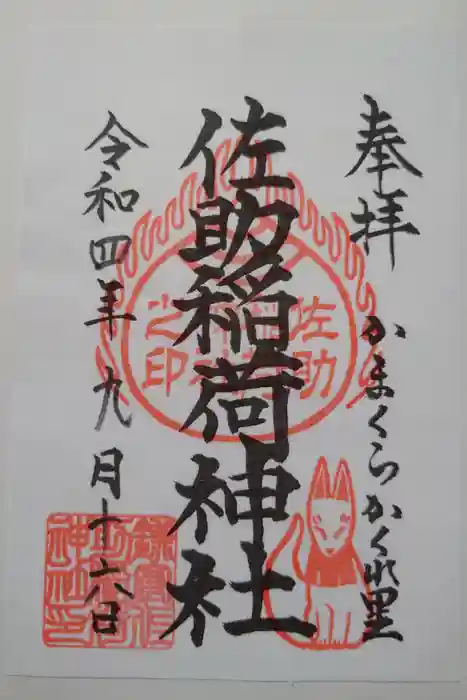 奉拝
かまくらかくれ里
佐助稲荷神社
令和四年九月十六日
佐助
之印